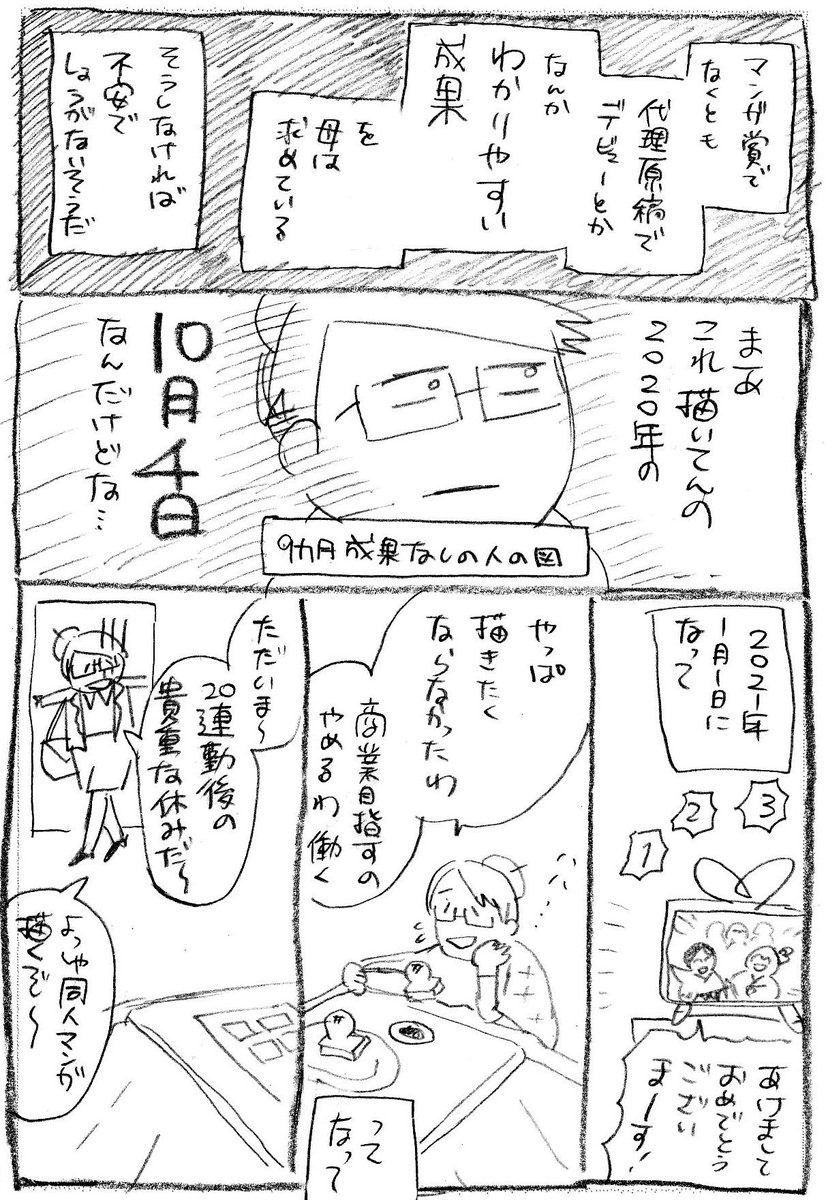 マンガ賞で
なくとも
代理原稿で
デビューとか
なんか
わかりやすい
成果
を
母は
求めている
そうしなければ
不安で
しょうがないそうだ
まあ
これ描いてんの
2020年の
10月4日
なんだけどな…
9カ月成果なしの人の図
2021年
1月1日に
なって
3
2
1
あけまして
おめでとう
ござい
まーす!
やっぱ
描きたく
ならなかったわ
商業目指すの
やめるわ働く
って
なって
ただいま〜
20連勤後の
貴重な休みだ〜
よっしゃ同人マンガ
描くぞ〜